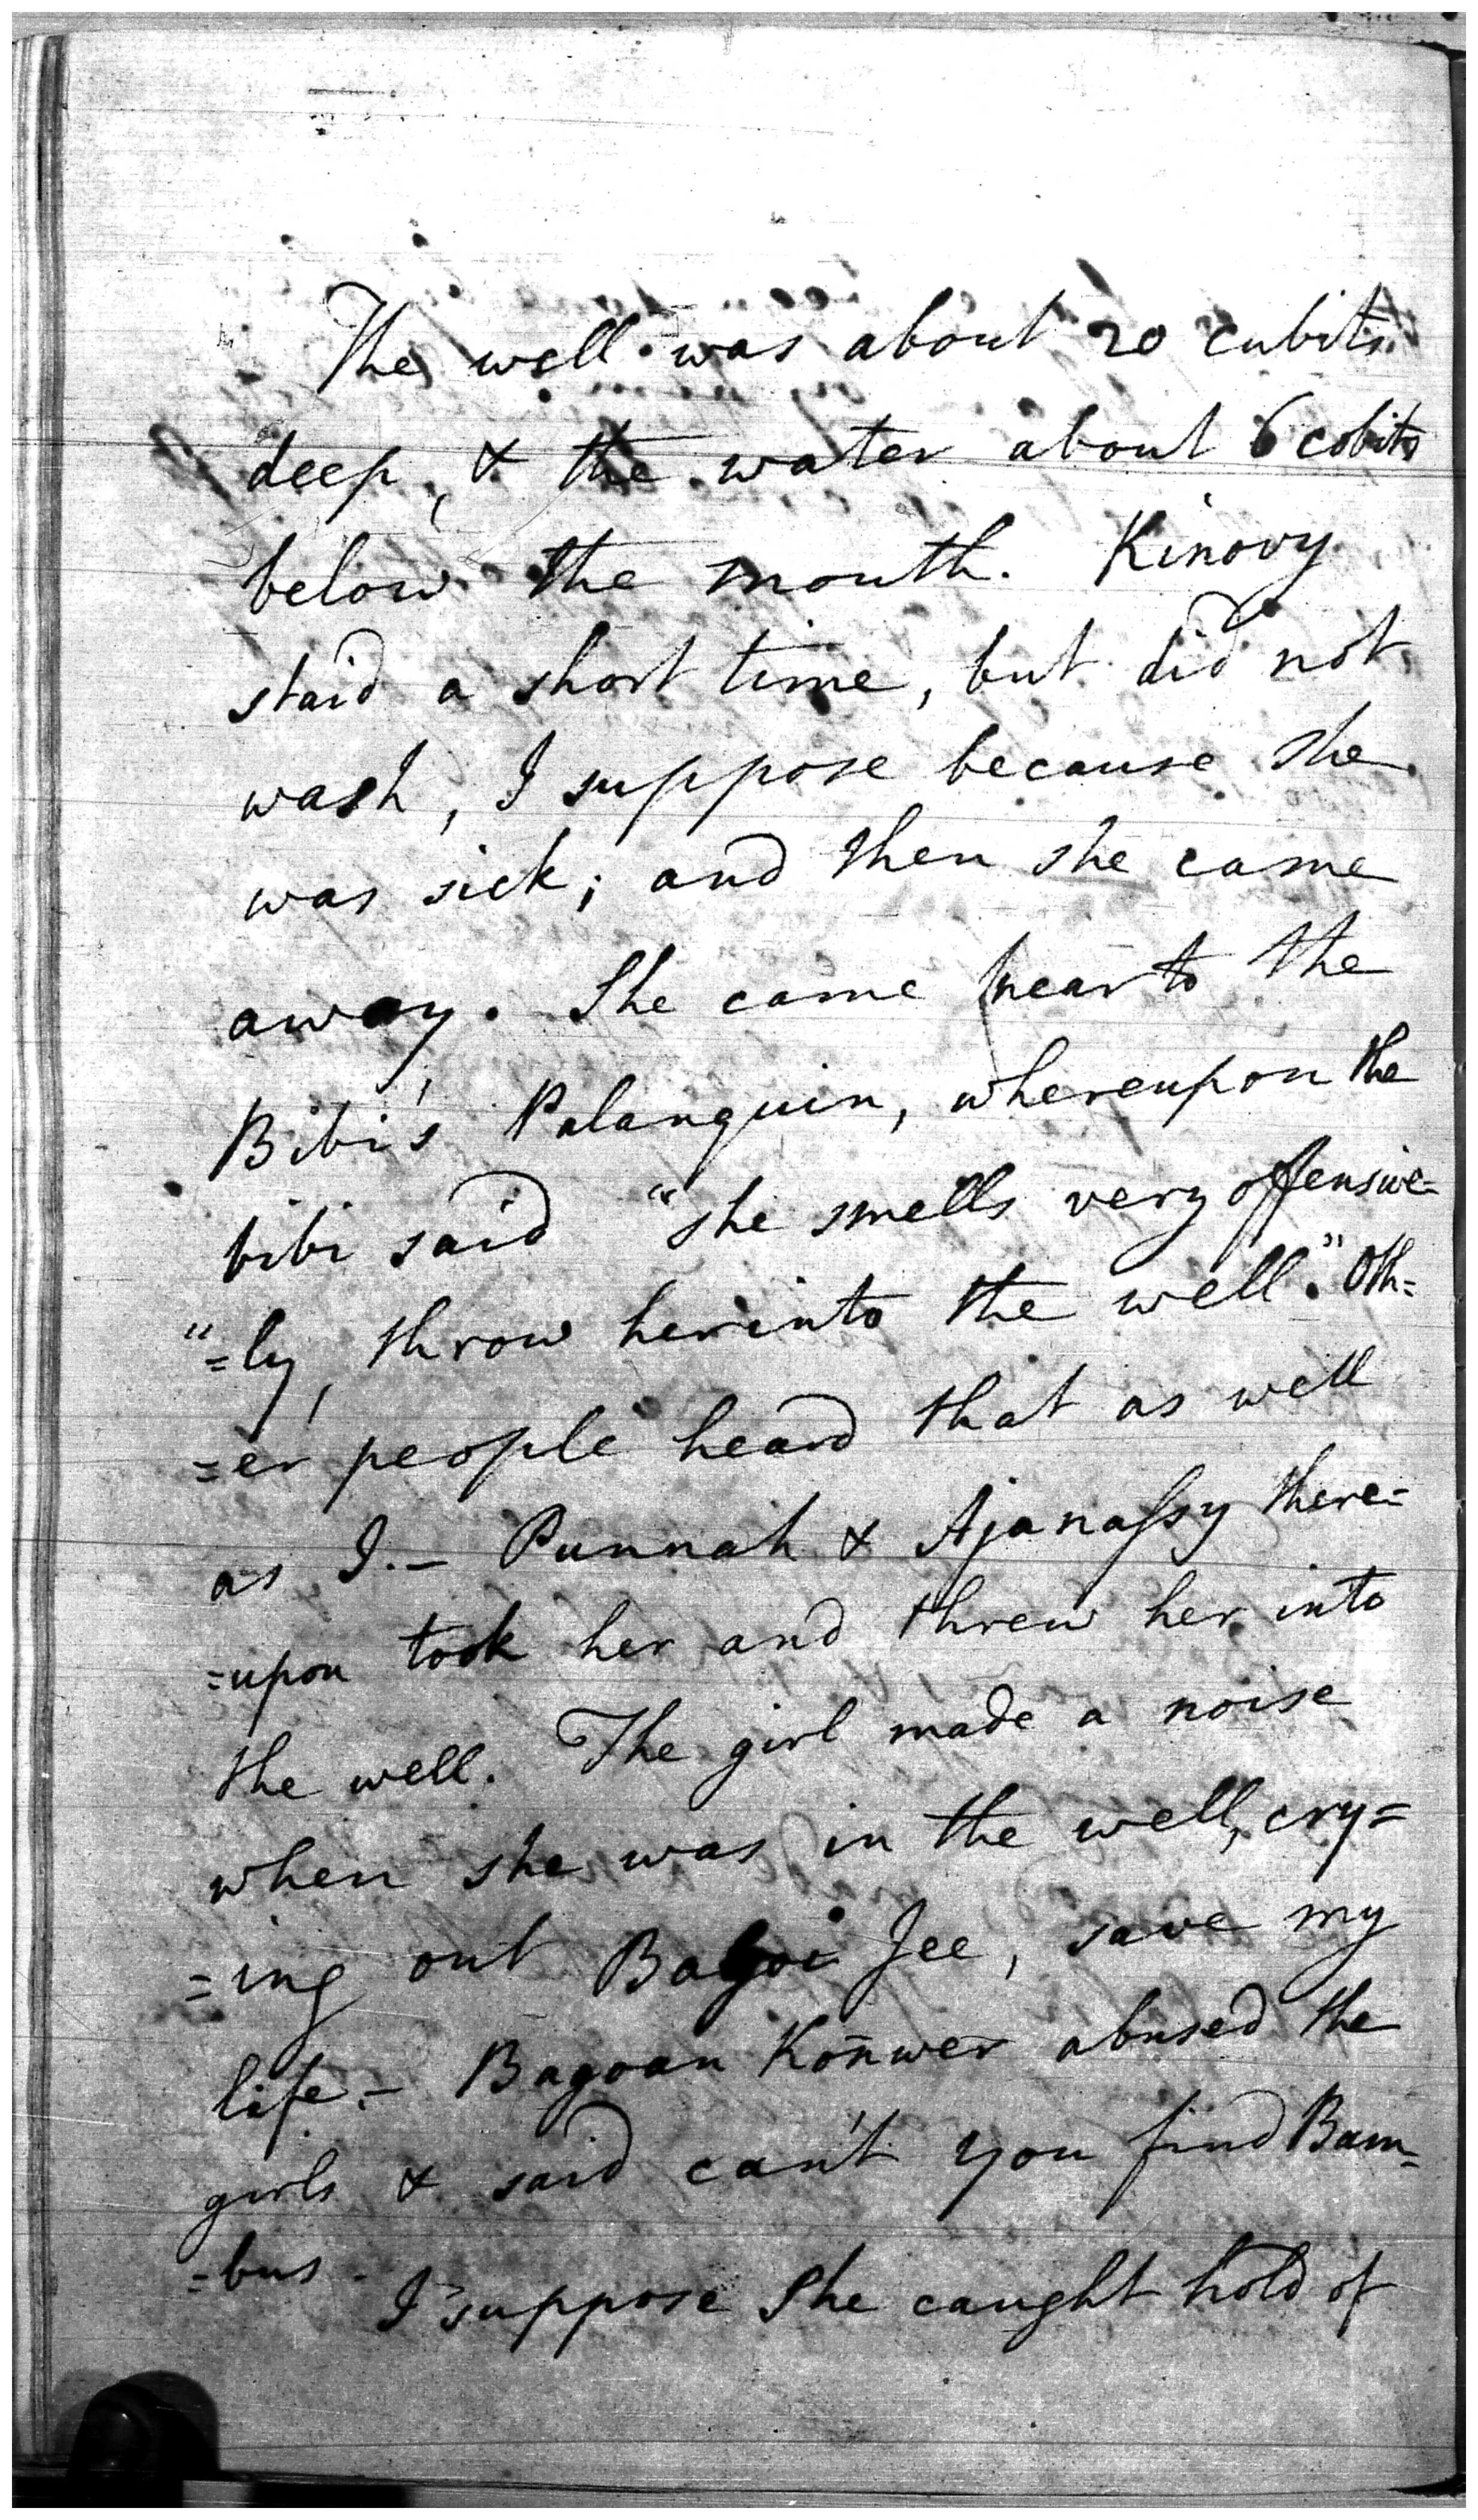 The well was about 20 cubits
deep, & the water about 6 cobits
below the mouth. Kinovy
staid a short time, but did not
wash, I suppose because she
was sick; and then she came
away. She came near to the
Bibi's Palanquin, whereupon the
bibi said "she smells very offensive-
"=ly, throw her into the well." Oth=
=er people heard that as well
as I.— Punnah & Ajanaſsy there=
=upon took her and threw her into
the well. The girl made a noise
when she was in the well, cry=
=ing out Jee, save my
life.— Bagoan Konwer abused the
girls & said can't you find Bam-
=bus -
I suppose she caught hold of